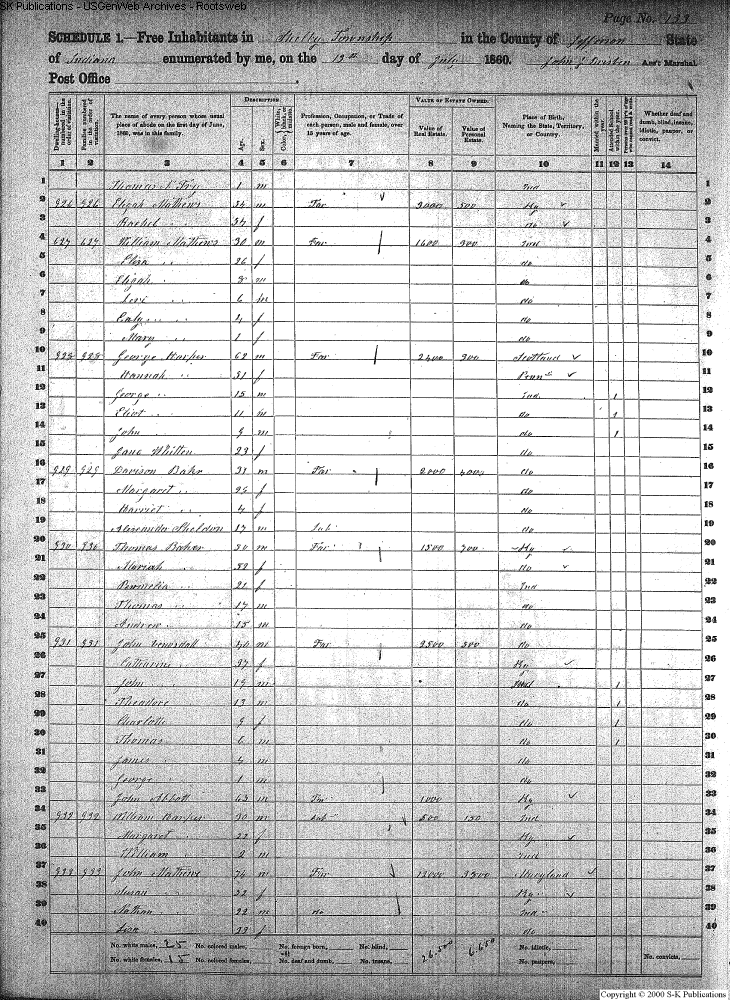 SK Publications - USGenWeb Archives - Rootsweb
Page No. 133
SCHEDULE 1.—Free Inhabitants in Shelby Township in the County of Jefferson State
of Indiana enumerated by me, on the 19th day of July 1860. John Ass't Marshal.
Post Office
Dwelling-houses—numbered in the order of visitation.
Families numbered in the order of visitation.
The name of every person whose usual place of abode on the first day of June, 1860, was in this family.
DESCRIPTION.
Age.
Sex.
Color, White, black, or mulatto.
Profession, Occupation, or Trade of each person, male and female, over 15 years of age.
VALUE OF ESTATE OWNED.
Value of Real Estate.
Value of Personal Estate.
Place of Birth, Naming the State, Territory, or Country.
Married within the year.
Attended School within the year.
Whether deaf and dumb, blind, insane, idiotic, pauper, or convict.
1 2 3 4 5 6 7 8 9 10 11 12 13 14
1 Thomas Fry 1 m Ind 1
2 926 926 Elijah Mathews 34 m Far 3000 500 Ky 2
3 Rachel " 34 f do 3
4 927 927 William Mathews 30 m Far 1600 300 Ind 4
5 Eliza " 26 f do 5
6 Elijah " 8 m do 6
7 Levi " 6 m do 7
8 " 4 f do 8
9 Mary " 1 f do 9
10 928 928 George Harper 62 m Far 2400 300 Scotland 10
11 Hannah " 51 f Penn 11
12 George " 15 m Ind 1 12
13 Eliot " 11 m do 1 13
14 John " 9 m do 1 14
15 Jane Whitten 23 f do 15
16 929 929 Davison Bakr 31 m Far 2000 400 do 16
17 Margaret " 25 f do 17
18 Harriet " 4 f do 18
19 Alexander Sheldon 17 m Lab do 19
20 930 930 Thomas Baker 50 m Far 1500 300 Ky 20
21 Mariah " 52 f do 21
22 Permelia " 21 f Ind 22
23 Thomas " 17 m do 23
24 Andrew " 15 m do 24
25 931 931 John 40 m Far 2500 300 do 25
26 Catharine 37 f Ky 26
27 John " 15 m Ind 1 27
28 Theodore " 13 m do 1 28
29 Charlotte " 9 f do 1 29
30 Thomas " 6 m do 1 30
31 James " 4 m do 31
32 George " 1 m do 32
33 John Abbott 43 m Far 1000 Ky 33
34 932 932 William Harper 30 m Lab 500 150 Ind 34
35 Margaret " 22 f Ky 35
36 William " 2 m Ind 36
37 933 933 John Mathews 74 m Far 12000 3500 Maryland 37
38 Susan " 52 f Ky 38
39 Nathan " 22 m do Ind 39
40 " 23 f do 40
No. white males, 25 No. colored males, No. foreign born, No. blind, 26.500 6.650 No. idiotic,
No. white females, 15 No. colored females, No. deaf and dumb, No. insane, No. paupers, No. convicts,
Copyright © 2000 S-K Publications